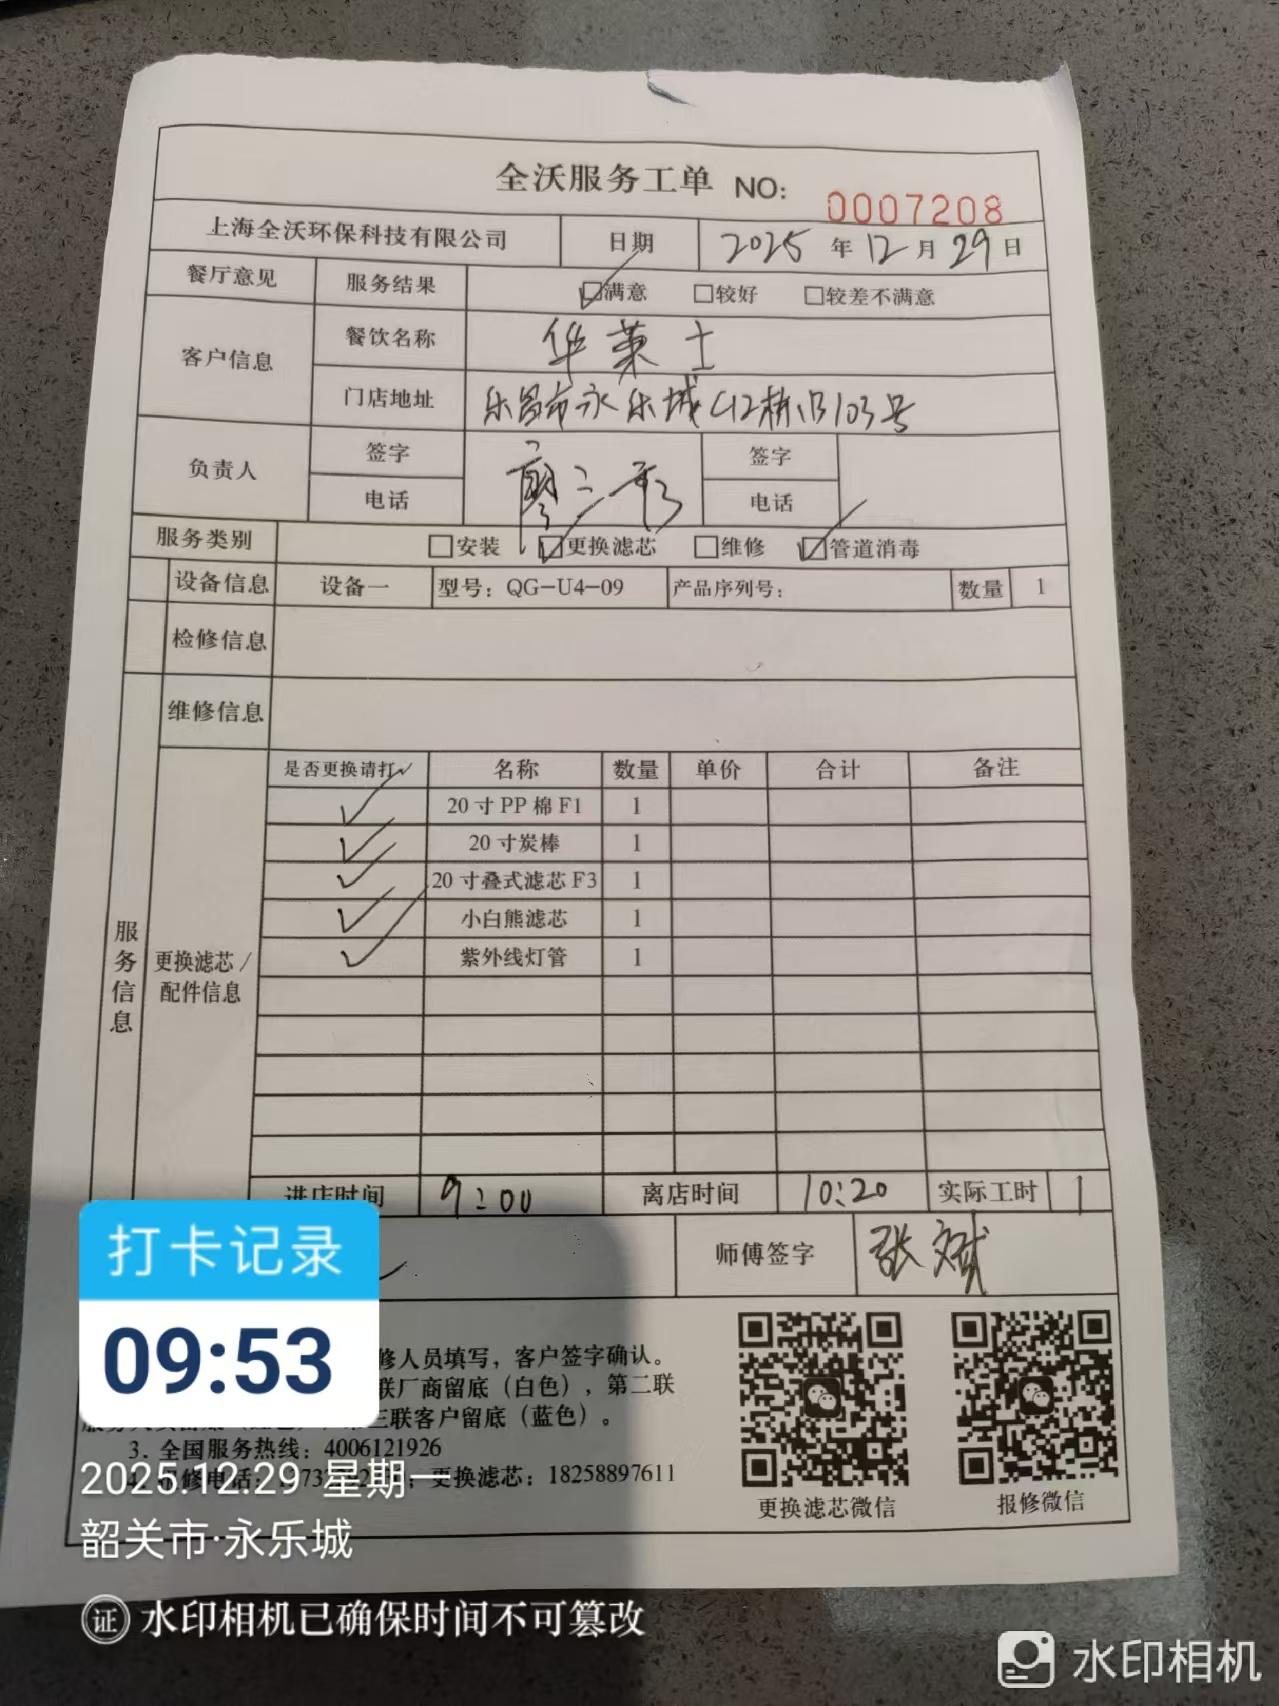 全沃服务工单 NO: 0007208
上海全沃环保科技有限公司 日期 2025 年 12 月 29 日
餐厅意见 服务结果 ☑满意 □较好 □较差不满意
客户信息 餐饮名称 华莱士
门店地址 乐昌市永乐城C12栋 103号
负责人 签字 廖 签字
电话 电话
服务类别 □安装 ☑更换滤芯 □维修 ☑管道消毒
设备信息 设备一 型号：QG-U4-09 产品序列号： 数量 1
检修信息
维修信息
服务信息
更换滤芯/
配件信息
是否更换请打✓ 名称 数量 单价 合计 备注
✓ 20寸PP棉F1 1
✓ 20寸炭棒 1
✓ 20寸叠式滤芯F3 1
✓ 小白熊滤芯 1
✓ 紫外线灯管 1
进店时间 9:00 离店时间 10:20 实际工时 1
师傅签字 张斌
修人员填写，客户签字确认。
联厂商留底（白色），第二联
三联客户留底（蓝色）。
3. 全国服务热线：4006121926
更换滤芯：18258897611
更换滤芯微信 报修微信
打卡记录
09:53
2025.12.29 星期一
韶关市·永乐城
证 水印相机已确保时间不可篡改
水印相机